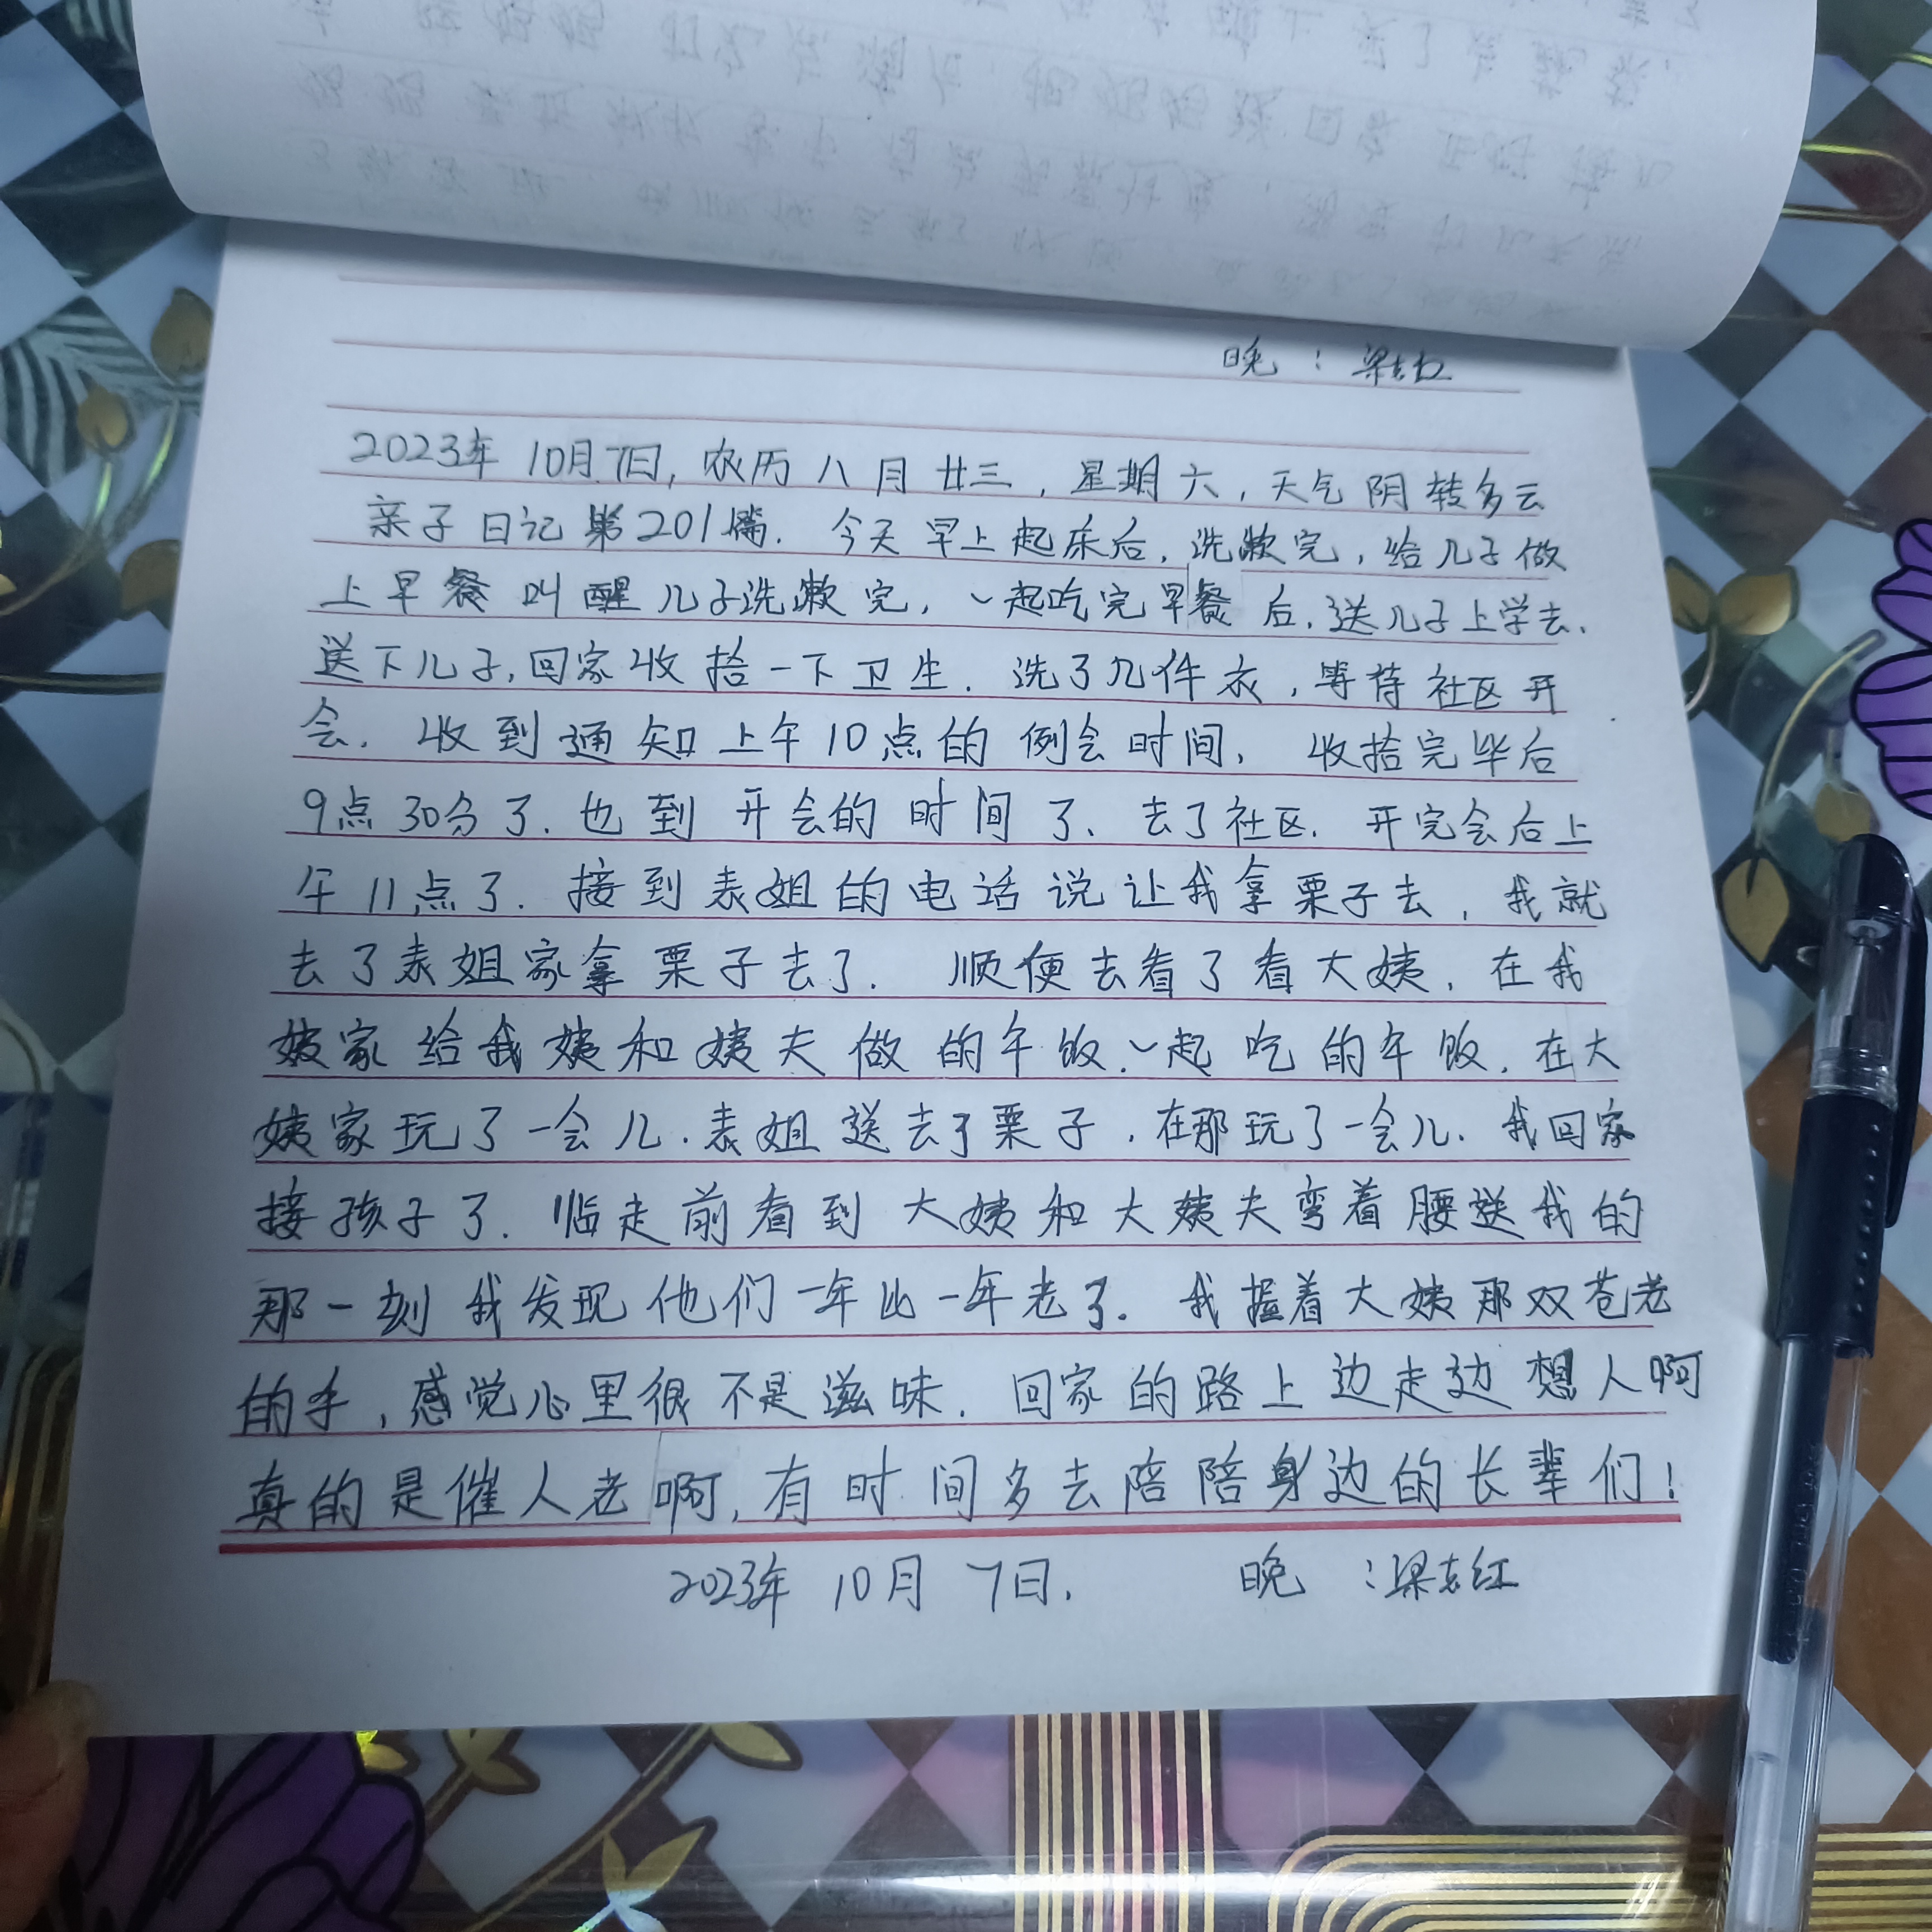 晚：梁志红
2023年10月7日，农历八月廿三，星期六，天气阴转多云
亲子日记第201篇．今天早上起床后，洗漱完，给儿子做
上早餐叫醒儿子洗漱完，一起吃完早餐后，送儿子上学去．
送下儿子，回家收拾一下卫生．洗了几件衣，等待社区开
会．收到通知上午10点的例会时间，收拾完毕后
9点30分了．也到开会的时间了、去了社区．开完会后上
午11点了．接到表姐的电话说让我拿栗子去，我就
去了表姐家拿栗子去了．顺便去看了看大姨．在我
姨家给我姨和姨夫做的午饭．一起吃的午饭．在大
姨家玩了一会儿．表姐送去了栗子．在那玩了一会儿．我回家
接孩子了．临走前看到大姨和大姨夫弯着腰送我的
那一刻我发现他们一年比一年老了．我握着大姨那双苍老
的手，感觉心里很不是滋味．回家的路上边走边想人啊
真的是催人老啊，有时间多去陪陪身边的长辈们！
2023年10月7日． 晚：梁志红